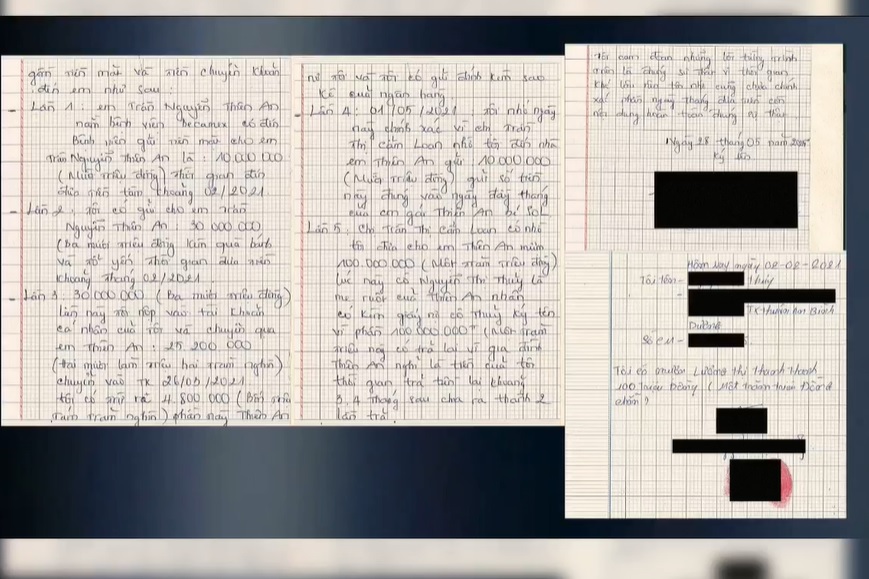 gồm tiền mặt và tiền chuyển khoản
đến em như sau:
- Lần 1: em Trần Nguyễn Thiên An
nằm bệnh viện becamex có đến
Bệnh viện gửi tiền mặt cho em
Trần Nguyễn Thiên An là: 10.000.000
(Mười triệu đồng) thời gian đến
đưa tiền tầm khoảng 02/2021
- Lần 2: Tôi có gửi cho em Trần
Nguyễn Thiên An: 30.000.000
(Ba mươi triệu đồng kèm quà bánh
và tổ yến thời gian đưa tiền
khoảng tháng 02/2021
- Lần 3: 30.000.000 (Ba mươi triệu đồng)
lần này tôi nộp vào tài khoản
cá nhân của tôi và chuyển qua
em Thiên An: 25 200 000
(hai mươi lăm triệu hai trăm nghìn)
chuyển vào TK 26/03/2021
tôi có trừ ra 4.800 000 (Bốn triệu
tám trăm nghìn) phần này Thiên An
nợ tôi và tôi có gửi đính kèm sao
kê của ngân hàng.
- Lần 4: 01/05/2021 tôi nhớ ngày
này chính xác vì chị Trần
Thị Cẩm Loan nhờ tôi đến nhà
em Thiên An gửi 10.000.000
(Mười triệu đồng) gửi số tiền
này đúng vào ngày đầy tháng
của con gái Thiên An bé SOL
Lần 5: Chị Trần Thị Cẩm Loan có nhờ
tôi đưa cho em Thiên An mượn
100.000.000 (Một trăm triệu đồng)
lúc này có Nguyễn Thị Thủy là
mẹ ruột của Thiên An nhận
có kèm giấy nợ cô Thủy ký tên
vì phần 100.000.000 (Một Trăm
triệu này có trả lại vì gia đình
Thiên An nghĩ là tiền của tôi
thời gian trả tiền lại khoảng
3,4 tháng sau chia ra thành 2
lần trả.
Tôi cam đoan những lời tường trình
trên là đúng sự thật vì thời gian
khá lâu nên tôi nhớ cũng chưa chính
xác phần ngày tháng đưa tiền còn
nội dung hoàn toàn đúng sự thật.
Ngày 28 tháng 05 năm 2025
Ký tên
Hôm nay ngày 08-08-2021
Tôi tên- Thủy
TX Thuận An Bình
Dương
Số CM-
Tôi có mượn Lương thị thanh thanh
100 triệu Đồng (Một trăm triệu Đồng
chẵn)